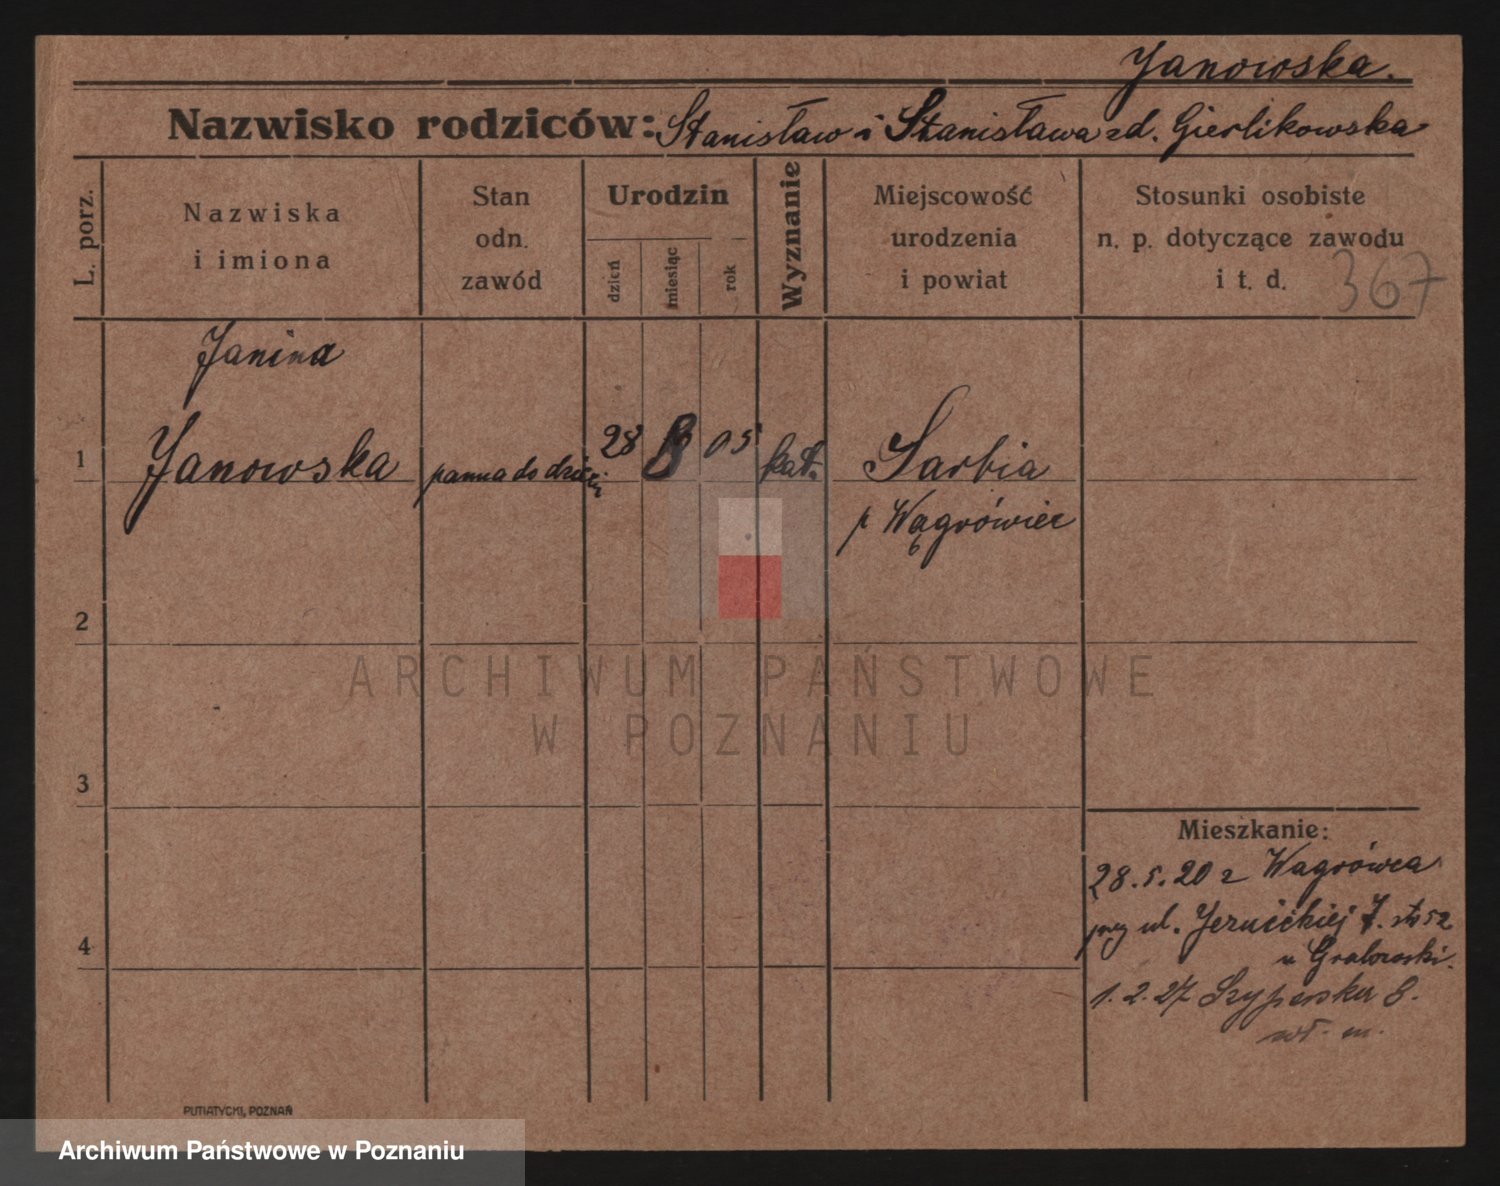 Janowska.
Nazwisko rodziców: Stanisław i Stanisława zd. Gierlikowska
L. porz.
Nazwiska
i imiona
Stan
odn.
zawód
Urodzin
dzień
miesiąc
rok
Wyznanie
Miejscowość
urodzenia
i powiat
Stosunki osobiste
n. p. dotyczące zawodu
i t. d.
367
Janina
1 Janowska panna do dzieci 28 05 kat. Sarbia
p Wągrówiec
2
ARCHIWUM PAŃSTWOWE
W POZNANIU
3
4
Mieszkanie:
28.5.20 z Wągrówca
przy ul. 7.
u Grabowski.
1.2.27 Szyperska 8.
wł. m.
PUTIATYCKI, POZNAŃ
Archiwum Państwowe w Poznaniu